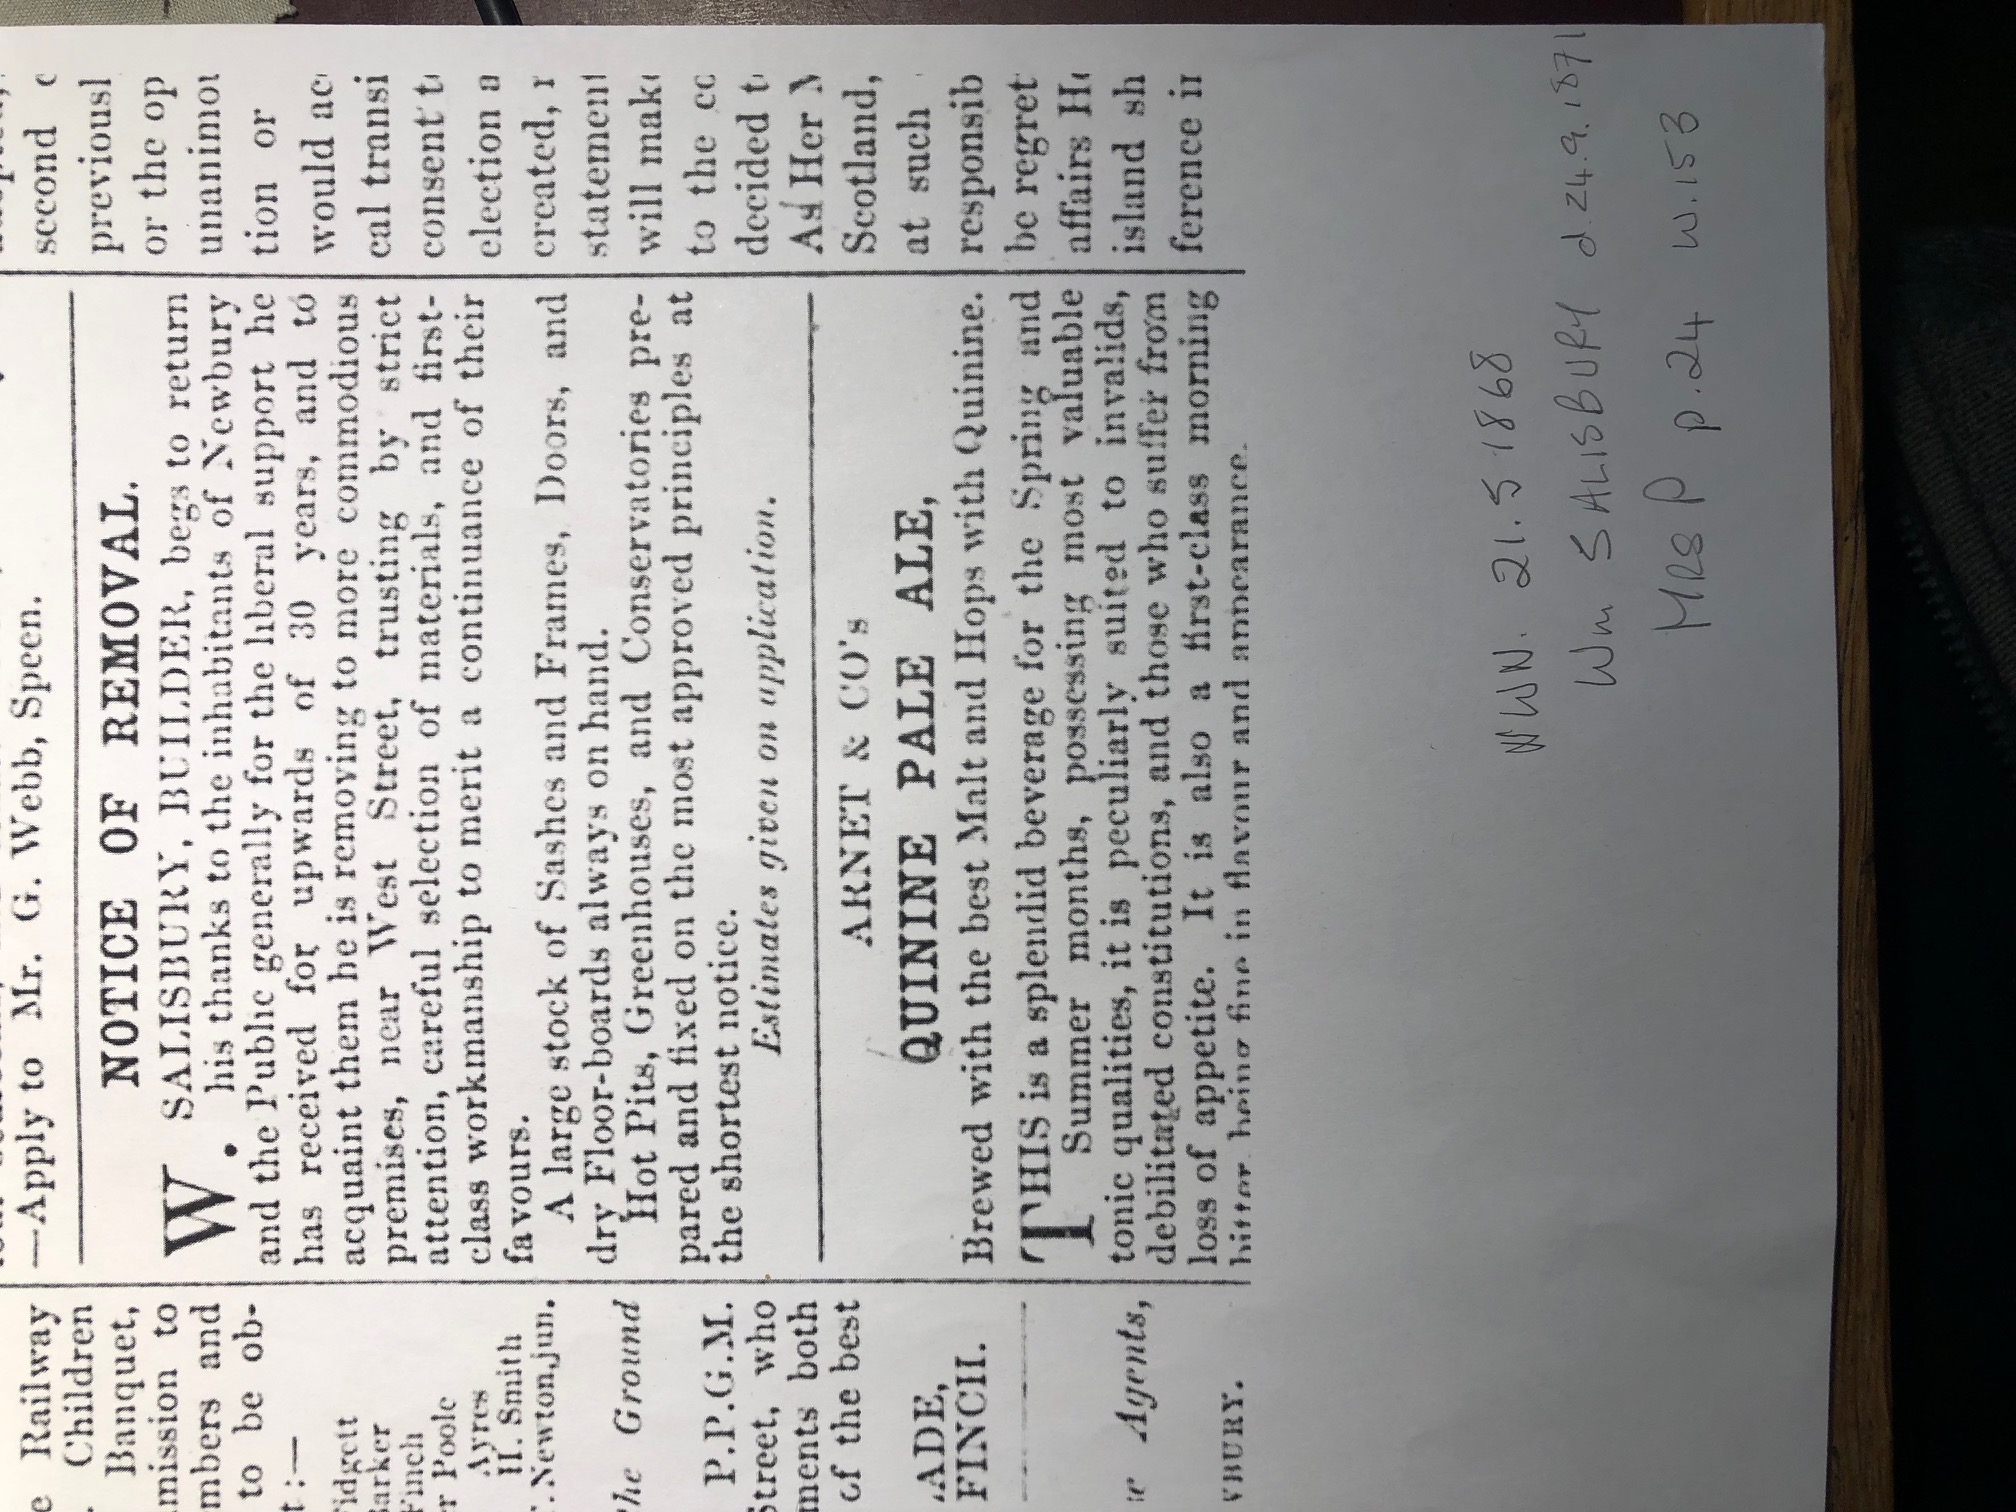 Railway
Children
Banquet,
mission to
mbers and
to be ob-
t :—
idgett
arker
Finch
r Poole
Ayres
H. Smith
Newton, jun.
The Ground
P.P.G.M.
Street, who
ments both
of the best
ADE,
FINCH.
Agents,
BURY.
—Apply to Mr. G. Webb, Speen.
NOTICE OF REMOVAL.
W. SALISBURY, BUILDER, begs to return
his thanks to the inhabitants of Newbury
and the Public generally for the liberal support he
has received for upwards of 30 years, and to
acquaint them he is removing to more commodious
premises, near West Street, trusting by strict
attention, careful selection of materials, and first-
class workmanship to merit a continuance of their
favours.
A large stock of Sashes and Frames, Doors, and
dry Floor-boards always on hand.
Hot Pits, Greenhouses, and Conservatories pre-
pared and fixed on the most approved principles at
the shortest notice.
Estimates given on application.
ARNET & CO's
QUININE PALE ALE,
Brewed with the best Malt and Hops with Quinine.
THIS is a splendid beverage for the Spring and
Summer months, possessing most valuable
tonic qualities, it is peculiarly suited to invalids,
debilitated constitutions, and those who suffer from
loss of appetite. It is also a first-class morning
bitter being fine in flavour and appearance.
second c
previousl
or the op
unanimou
tion or
would ac
cal transi
consent t
election a
created, r
statement
will make
to the co
decided t
As Her M
Scotland,
at such
responsib
be regret
affairs H
island sh
ference in
NWN. 21.5 1868
Wm SALISBURY d.24.9.1871
MRS P p.24 W.153